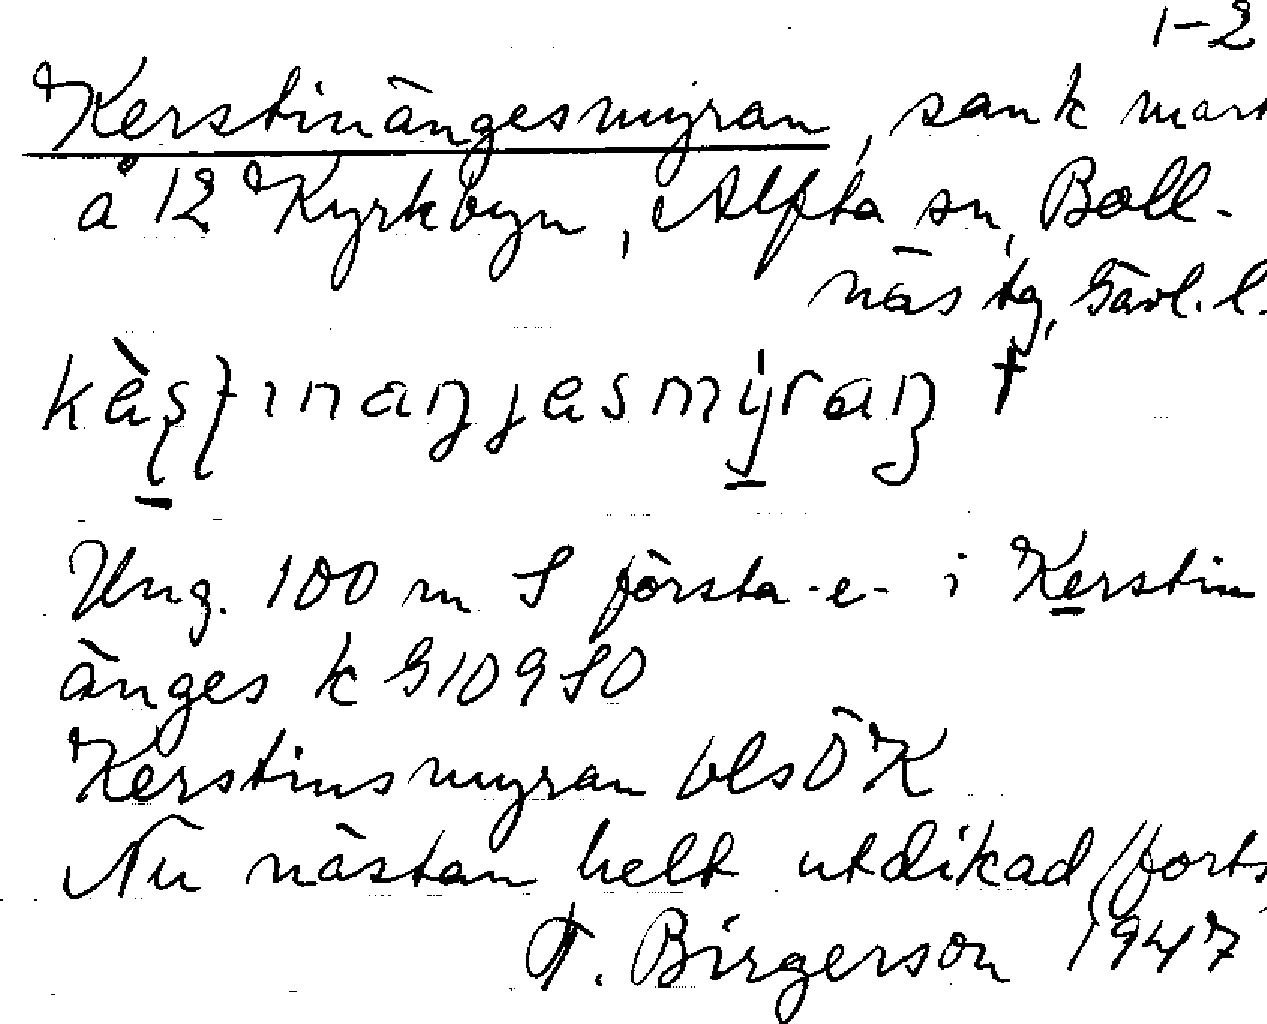 1-2
Kerstinängesmyran, sank mark
å 12 Kyrkbyn, Alfta sn, Boll-
näs tg, Gävl. l.
Ung. 100 m S första -e- i Kerstin
änges k G 109 SO
Kerstinsmyran bls ÖK
Nu nästan helt utdikad /forts
T. Birgerson 1947